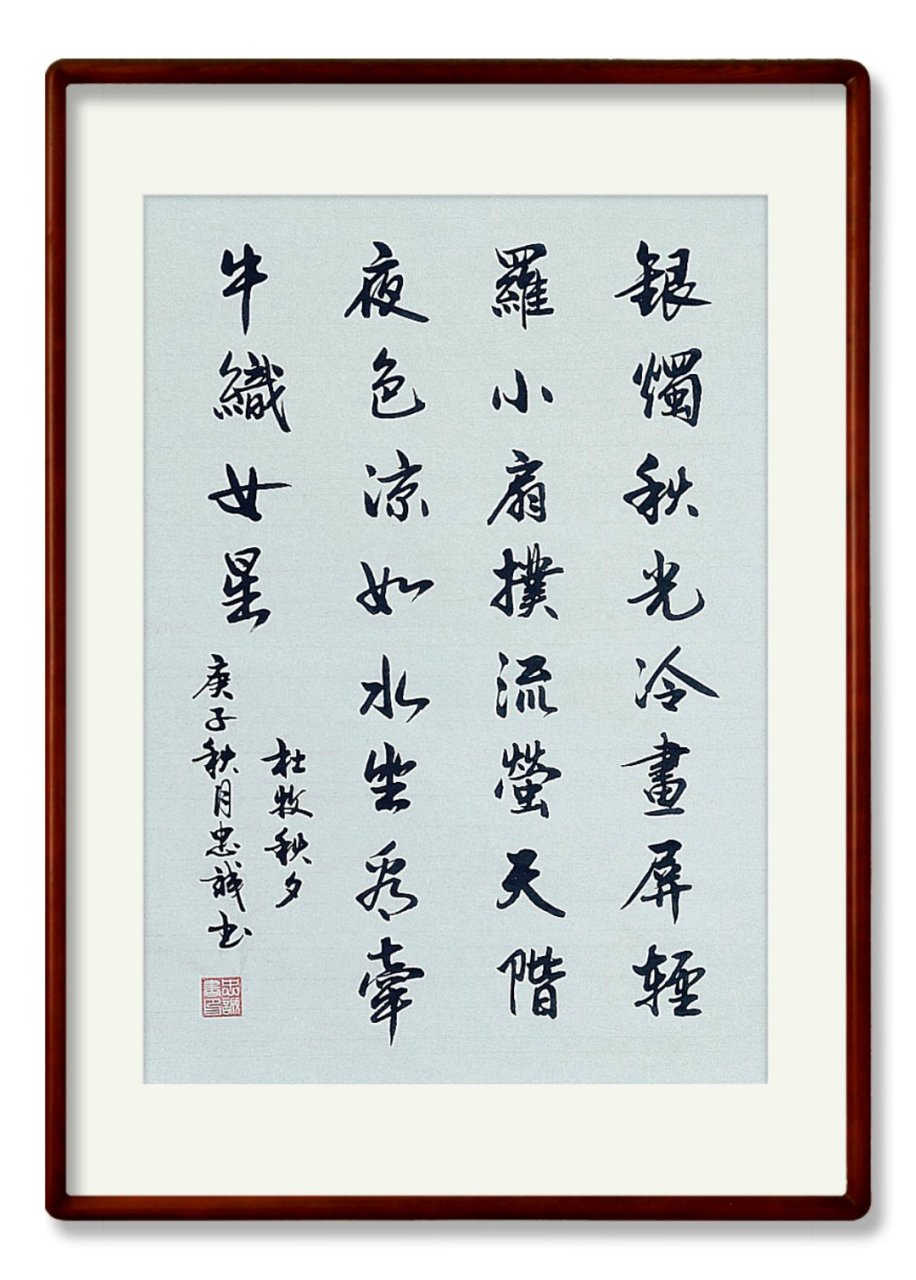 銀燭秋光冷畫屏輕
羅小扇撲流螢天階
夜色涼如水坐看牽
牛織女星
杜牧秋夕
庚子秋月忠誠书
忠誠書印